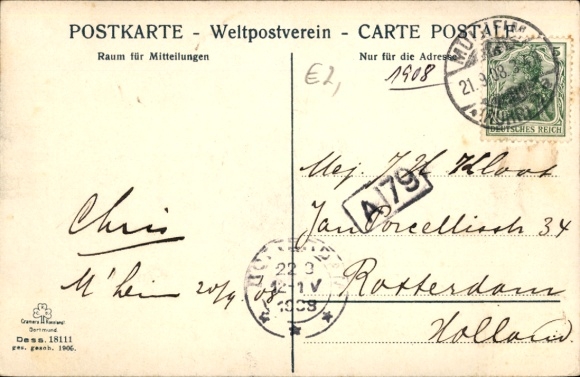 POSTKARTE - Weltpostverein - CARTE POSTALE
Raum für Mitteilungen
Nur für die Adresse
€2,
1908
21.9.08
5
(RUHR)
DEUTSCHES REICH
Mej. J H Kloos
A 79
Jan Porcellisstr 34
Rotterdam
Holland
Chris
M'heim 20/9 08
ROTTERDAM
22 9
12-1 V
1908
Cramers Kunstanst
Dortmund
Dess. 18111
ges. gesch. 1905.